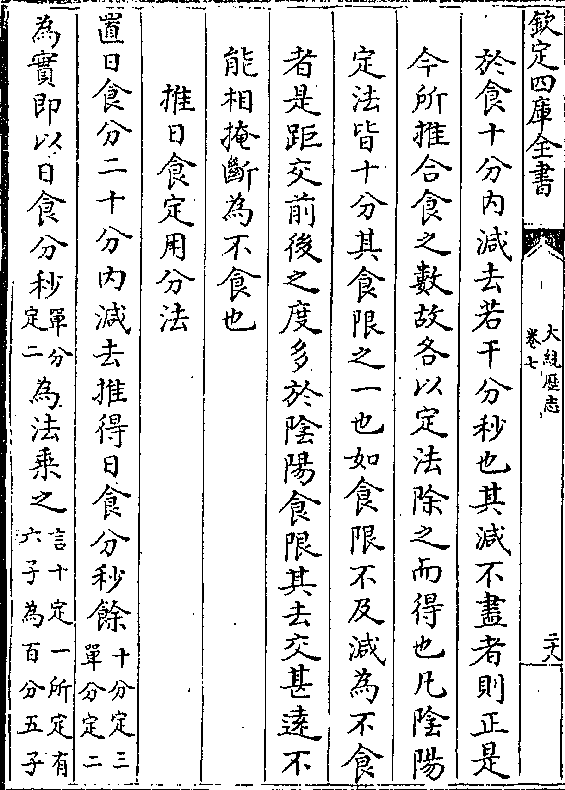 欽定四庫全書
大統歷志
卷七
二十八
於食十分內減去若干分秒也其減不盡者則正是
今所推合食之數故各以定法除之而得也凡陰陽
定法皆十分其食限之一也如食限不及減為不食
者是距交前後之度多於陰陽食限其去交甚遠不
能相掩斷為不食也
推日食定用分法
置日食分二十分內減去推得日食分秒餘十分定三單分定二
為實即以日食分秒單分定二為法乘之言十定一所定有六子為百分五子